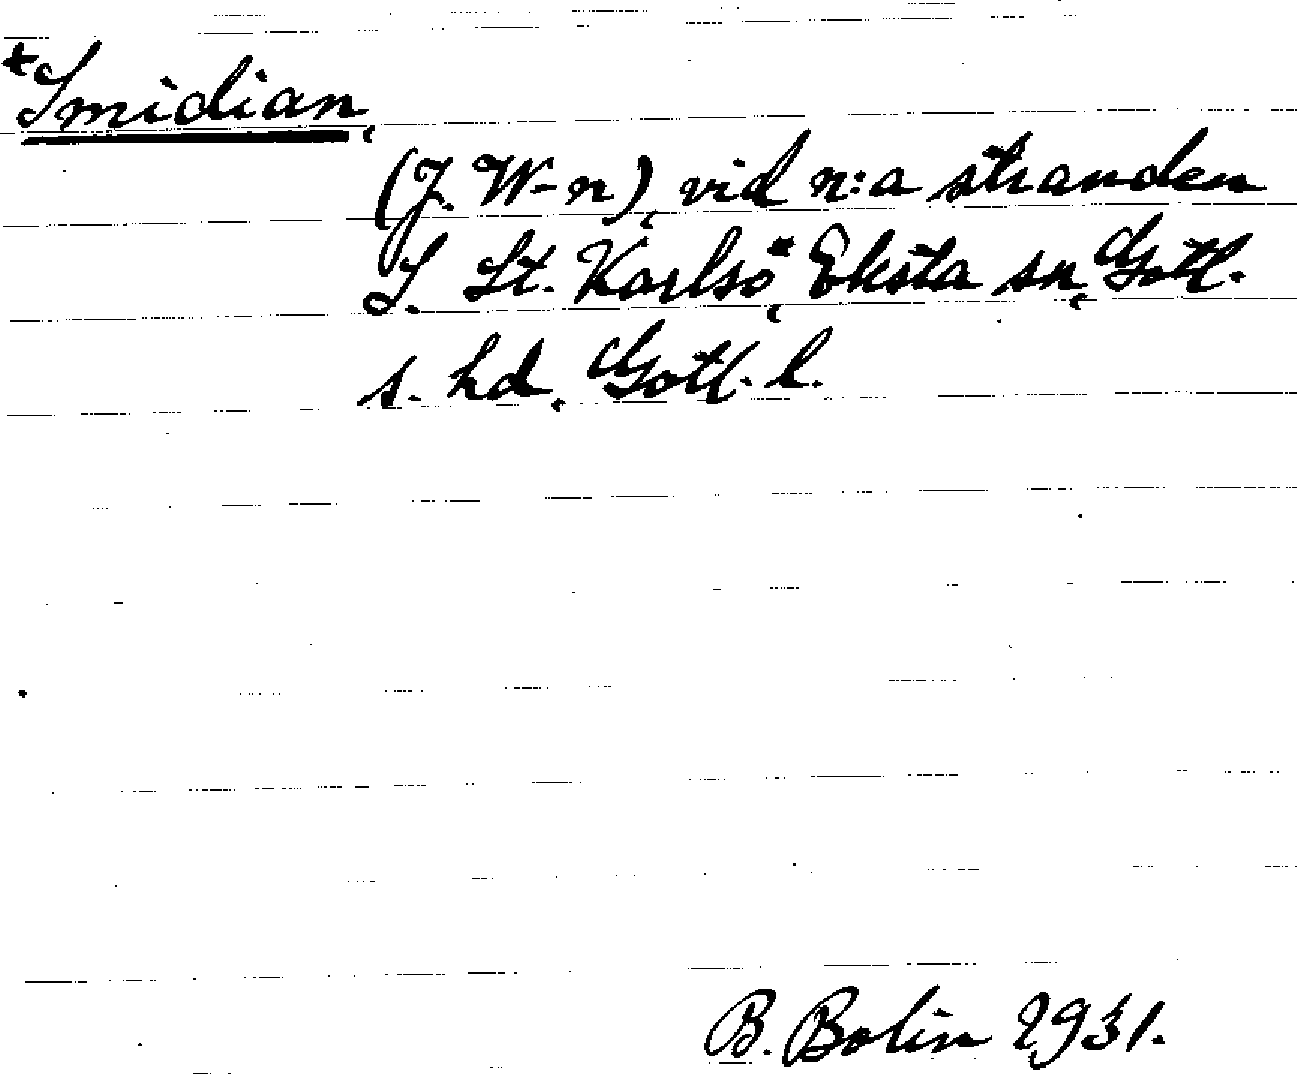 *Smidian,
(J. W-n), vid n:a stranden
S. St. Karlsö*, Eksta sn, Gotl.
s. hd, Gotl. l.
B. Bolin 1931.